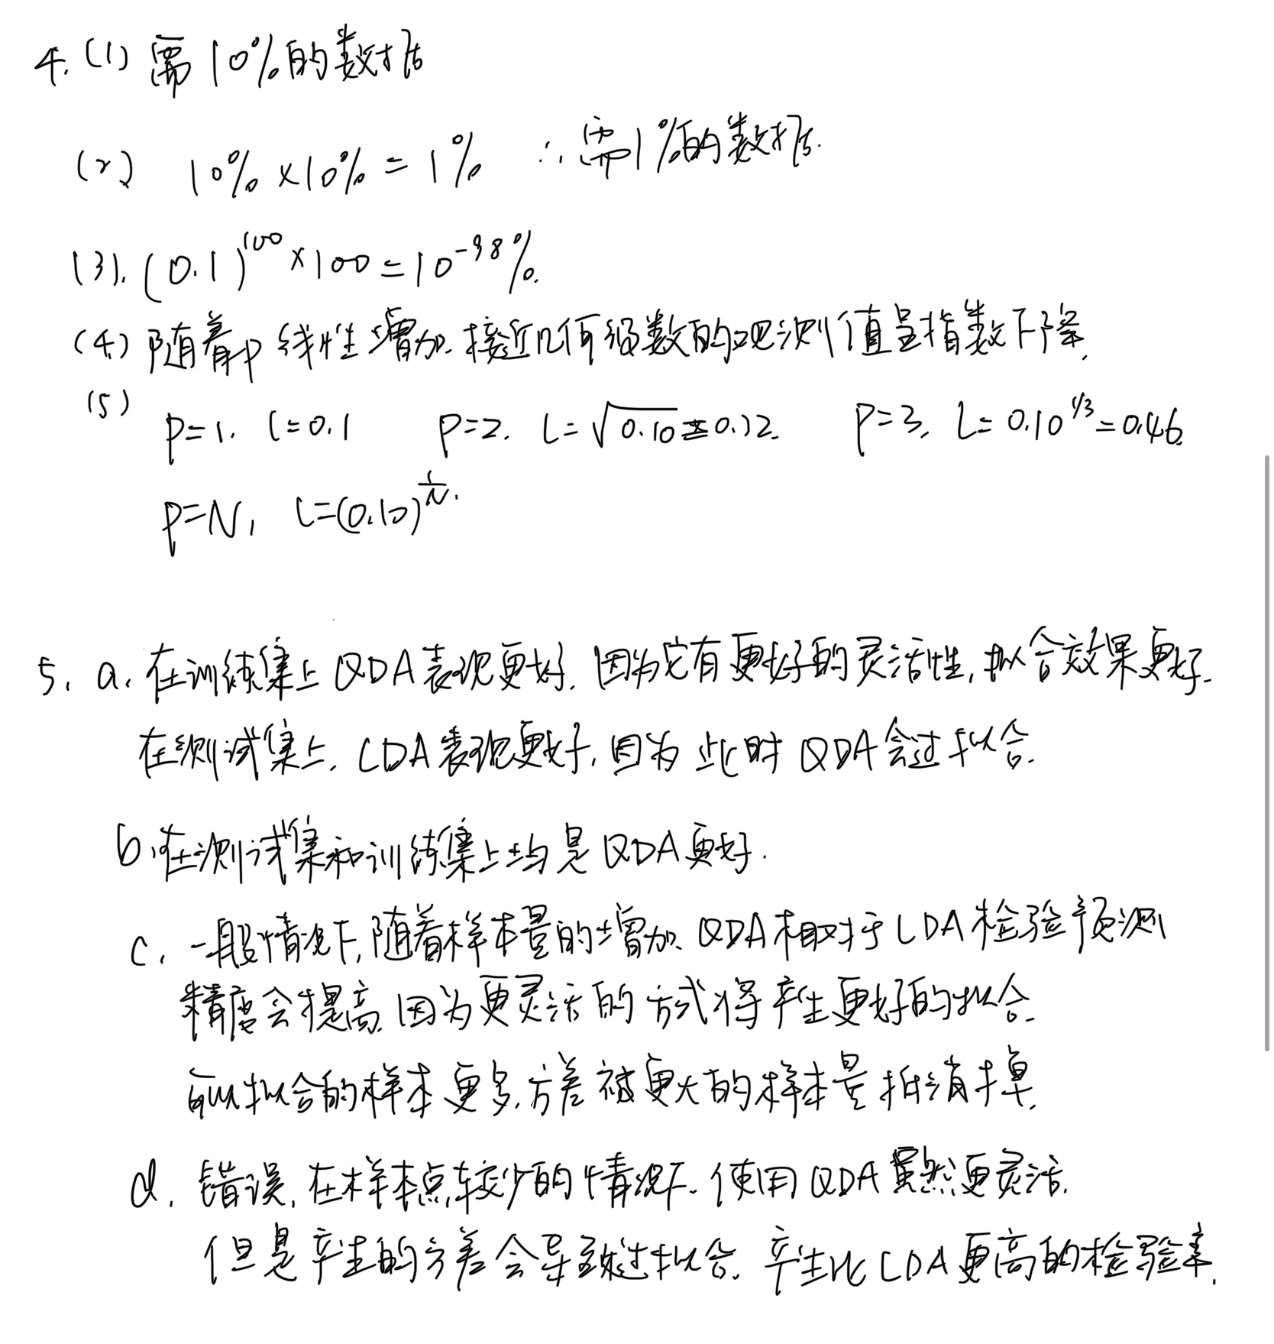 4. (1) 需10%的数据
(2) 10% × 10% = 1% ∴需1%的数据.
(3). (0.1)^100 × 100 = 10^-98 %.
(4) 随着p线性增加. 接近几何级数的观测值呈指数下降.
(5)
p=1. l=0.1 p=2. l=√0.10≌0.32. p=3. l=0.10^1/3=0.46.
p=N, l=(0.10)^1/N.
5. a. 在训练集上QDA表现更好. 因为它有更好的灵活性, 拟合效果更好.
在测试集上. LDA表现更好, 因为此时QDA会过拟合.
b. 在测试集和训练集上均是QDA更好.
c. 一般情况下, 随着样本量的增加. QDA相对于LDA检验预测
精度会提高. 因为更灵活的方式将产生更好的拟合.
可以拟合的样本更多, 方差被更大的样本量抵消掉.
d. 错误, 在样本点较少的情况下. 使用QDA虽然更灵活.
但是产生的方差会导致过拟合. 产生比LDA更高的检验率.